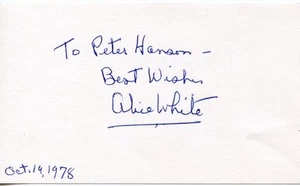 To Peter Hanson -
Best Wishes
Alice White
Oct. 19, 1978